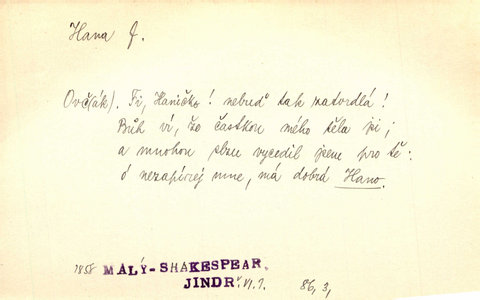 Hana J.
Ovč(ák). Fi, Haničko! nebuď tak zatvrdlá!
Bůh ví, že částkou mého těla jsi;
a mnohou slzu vycedil jsem pro tě:
ó nezapírej mne, má dobrá Hano.
1858 MALÝ-SHAKESPEAR,
JINDŘ. VI. 1. 86, 3,